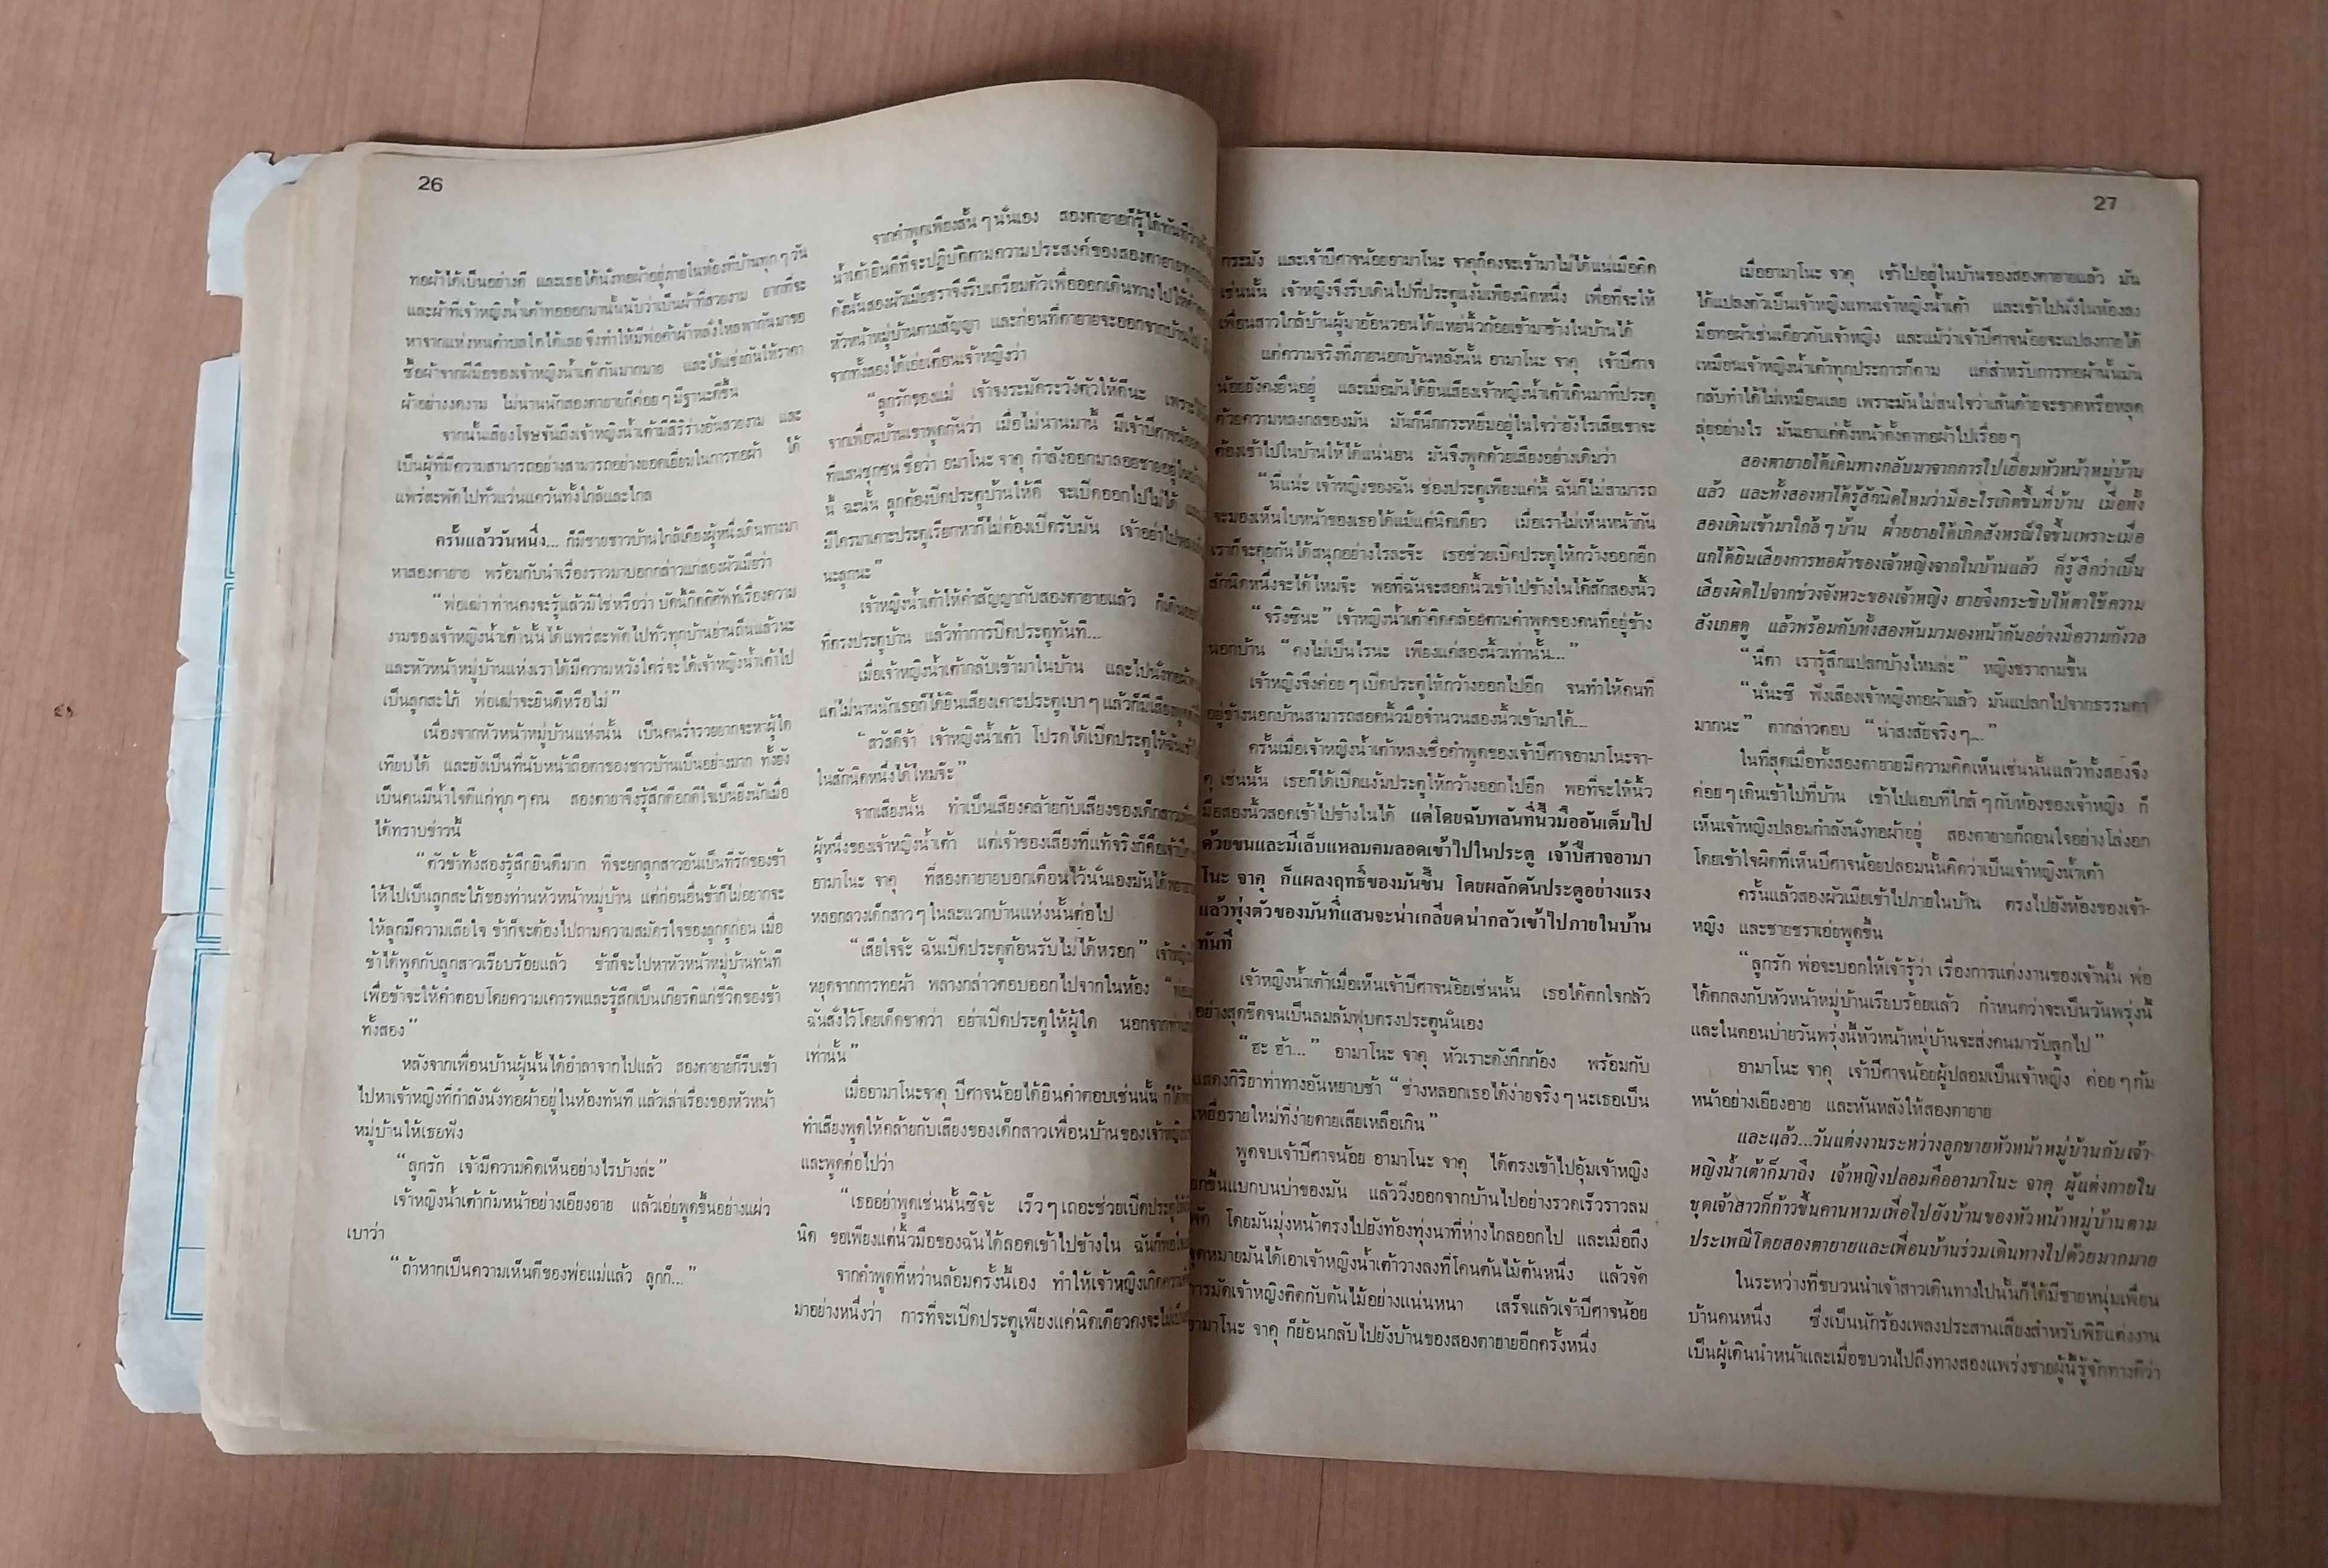 26
ทอผ้าได้เป็นอย่างดี และเธอได้นั่งทอผ้าอยู่ภายในห้องที่บ้านทุก ๆ วัน
และผ้าที่เจ้าหญิงน้ำเต้าทอออกมานั้นนับว่าเป็นผ้าที่สวยงาม ยากที่จะ
หาจากแห่งหนตำบลใดได้เลย จึงทำให้มีพ่อค้าผ้าหลั่งไหลพากันมาขอ
ซื้อผ้าจากฝีมือของเจ้าหญิงน้ำเต้ากันมากมาย และได้แข่งกันให้ราคา
ผ้าอย่างงดงาม ไม่นานนักสองตายายก็ค่อย ๆ มีฐานะดีขึ้น
จากนั้นเสียงโจษจันถึงเจ้าหญิงน้ำเต้ามีสิริร่างอันสวยงาม และ
เป็นผู้ที่มีความสามารถอย่างสามารถอย่างยอดเยี่ยมในการทอผ้า ได้
แพร่สะพัดไปทั่วแว่นแคว้นทั้งใกล้และไกล
ครั้นแล้ววันหนึ่ง... ก็มีชายชาวบ้านใกล้เคียงผู้หนึ่งเดินทางมา
หาสองตายาย พร้อมกับนำเรื่องราวมาบอกกล่าวแก่สองผัวเมียว่า
“พ่อเฒ่า ท่านคงจะรู้แล้วมิใช่หรือว่า บัดนี้กิตติศัพท์เรื่องความ
งามของเจ้าหญิงน้ำเต้านั้นได้แพร่สะพัดไปทั่วทุกบ้านย่านถิ่นแล้วนะ
และหัวหน้าหมู่บ้านแห่งเราได้มีความหวังใคร่จะได้เจ้าหญิงน้ำเต้าไป
เป็นลูกสะใภ้ พ่อเฒ่าจะยินดีหรือไม่”
เนื่องจากหัวหน้าหมู่บ้านแห่งนั้น เป็นคนร่ำรวยยากจะหาผู้ใด
เทียบได้ และยังเป็นที่นับหน้าถือตาของชาวบ้านเป็นอย่างมาก ทั้งยัง
เป็นคนมีน้ำใจดีแก่ทุก ๆ คน สองตายายจึงรู้สึกดีอกดีใจเป็นยิ่งนักเมื่อ
ได้ทราบข่าวนี้
“ตัวข้าทั้งสองรู้สึกยินดีมาก ที่จะยกลูกสาวอันเป็นที่รักของข้า
ให้ไปเป็นลูกสะใภ้ของท่านหัวหน้าหมู่บ้าน แต่ก่อนอื่นข้าก็ไม่อยากจะ
ให้ลูกมีความเสียใจ ข้าก็จะต้องไปถามความสมัครใจของลูกดูก่อน เมื่อ
ข้าได้พูดกับลูกสาวเรียบร้อยแล้ว ข้าก็จะไปหาหัวหน้าหมู่บ้านทันที
เพื่อข้าจะให้คำตอบโดยความเคารพและรู้สึกเป็นเกียรติแก่ชีวิตของข้า
ทั้งสอง”
หลังจากเพื่อนบ้านผู้นั้นได้อำลาจากไปแล้ว สองตายายก็รีบเข้า
ไปหาเจ้าหญิงที่กำลังนั่งทอผ้าอยู่ในห้องทันที แล้วเล่าเรื่องของหัวหน้า
หมู่บ้านให้เธอฟัง
“ลูกรัก เจ้ามีความคิดเห็นอย่างไรบ้างล่ะ”
เจ้าหญิงน้ำเต้าก้มหน้าอย่างเอียงอาย แล้วเอ่ยพูดขึ้นอย่างแผ่ว
เบาว่า
“ถ้าหากเป็นความเห็นดีของพ่อแม่แล้ว ลูกก็...”
จากคำพูดเพียงสั้น ๆ นั่นเอง สองตายายก็รู้ได้ทันที
น้ำเต้ายินดีที่จะปฏิบัติตามความประสงค์ของสองตายาย
ดังนั้นสองผัวเมียชราจึงรีบเตรียมตัวเพื่อออกเดินทางไปให้คำ
หัวหน้าหมู่บ้านตามสัญญา และก่อนที่ตายายจะออกจากบ้านไป
จากทั้งสองได้เอ่ยเตือนเจ้าหญิงว่า
“ลูกรักของแม่ เจ้าจงระมัดระวังตัวให้ดีนะ เพราะ
จากเพื่อนบ้านเขาพูดกันว่า เมื่อไม่นานมานี้ มีเจ้าปีศาจน้อย
ที่แสนซุกซน ชื่อว่า อมาโนะ จาคุ กำลังออกมาลอยชายอยู่ใน
นี้ ฉะนั้น ลูกต้องปิดประตูบ้านให้ดี จะเปิดออกไปไม่ได้
มีใครมาเคาะประตูเรียกหาก็ไม่ต้องเปิดรับมัน เจ้าอย่าไป
นะลูกนะ”
เจ้าหญิงน้ำเต้าให้คำสัญญากับสองตายายแล้ว ก็เดิน
ที่ตรงประตูบ้าน แล้วทำการปิดประตูทันที...
เมื่อเจ้าหญิงน้ำเต้ากลับเข้ามาในบ้าน และไปนั่งทอผ้า
แต่ไม่นานนักเธอก็ได้ยินเสียงเคาะประตูเบา ๆ แล้วก็มีเสียงพูด
“สวัสดีจ้า เจ้าหญิงน้ำเต้า โปรดได้เปิดประตูให้ฉัน
ในสักนิดหนึ่งได้ไหมจ๊ะ”
จากเสียงนั้น ทำเป็นเสียงคล้ายกับเสียงของเด็กสาว
ผู้หนึ่งของเจ้าหญิงน้ำเต้า แต่เจ้าของเสียงที่แท้จริงก็คือเจ้า
อามาโนะ จาคุ ที่สองตายายบอกเตือนไว้นั่นเองมันได้
หลอกลวงเด็กสาว ๆ ในละแวกบ้านแห่งนั้นต่อไป
“เสียใจจ้ะ ฉันเปิดประตูต้อนรับไม่ได้หรอก” เจ้าหญิง
หยุดจากการทอผ้า พลางกล่าวตอบออกไปจากในห้อง
ฉันสั่งไว้โดยเด็ดขาดว่า อย่าเปิดประตูให้ผู้ใด นอกจาก
เท่านั้น”
เมื่ออามาโนะจาคุ ปีศาจน้อยได้ยินคำตอบเช่นนั้น ก็ได้
ทำเสียงพูดให้คล้ายกับเสียงของเด็กสาวเพื่อนบ้านของเจ้าหญิง
และพูดต่อไปว่า
“เธออย่าพูดเช่นนั้นซิจ้ะ เร็ว ๆ เถอะช่วยเปิดประตู
นิด ขอเพียงแต่นิ้วมือของฉันได้ลอดเข้าไปข้างใน ฉันก็
จากคำพูดที่หว่านล้อมครั้งนี้เอง ทำให้เจ้าหญิงเกิดความ
มาอย่างหนึ่งว่า การที่จะเปิดประตูเพียงแค่นิดเดียวคงจะไม่
27
กระมัง และเจ้าปีศาจน้อยอามาโนะ จาคุก็คงจะเข้ามาไม่ได้แน่เมื่อคิด
เช่นนั้น เจ้าหญิงจึงรีบเดินไปที่ประตูแง้มเพียงนิดหนึ่ง เพื่อที่จะให้
เพื่อนสาวใกล้บ้านผู้มาอ้อนวอนได้แหย่นิ้วก้อยเข้ามาข้างในบ้านได้
แต่ความจริงที่ภายนอกบ้านหลังนั้น อามาโนะ จาคุ เจ้าปีศาจ
น้อยยังคงยืนอยู่ และเมื่อมันได้ยินเสียงเจ้าหญิงน้ำเต้าเดินมาที่ประตู
ด้วยความหลงกลของมัน มันก็นึกกระหยิ่มอยู่ในใจว่ายังไรเสียเขาจะ
ต้องเข้าไปในบ้านให้ได้แน่นอน มันจึงพูดด้วยเสียงอย่างเดิมว่า
“นี่แน่ะ เจ้าหญิงของฉัน ช่องประตูเพียงแค่นี้ ฉันก็ไม่สามารถ
จะมองเห็นใบหน้าของเธอได้แม้แต่นิดเดียว เมื่อเราไม่เห็นหน้ากัน
เราก็จะคุยกันได้สนุกอย่างไรล่ะจ๊ะ เธอช่วยเปิดประตูให้กว้างออกอีก
สักนิดหนึ่งจะได้ไหมจ๊ะ พอที่ฉันจะสอดนิ้วเข้าไปข้างในได้สักสองนิ้ว
“จริงซินะ” เจ้าหญิงน้ำเต้าคิดคล้อยตามคำพูดของคนที่อยู่ข้าง
นอกบ้าน “คงไม่เป็นไรนะ เพียงแค่สองนิ้วเท่านั้น...”
เจ้าหญิงจึงค่อย ๆ เปิดประตูให้กว้างออกไปอีก จนทำให้คนที่
อยู่ข้างนอกบ้านสามารถสอดนิ้วมือจำนวนสองนิ้วเข้ามาได้...
ครั้นเมื่อเจ้าหญิงน้ำเต้าหลงเชื่อคำพูดของเจ้าปีศาจอามาโนะจา-
คุ เช่นนั้น เธอก็ได้เปิดแง้มประตูให้กว้างออกไปอีก พอที่จะให้นิ้ว
มือสองนิ้วสอดเข้าไปข้างในได้ แต่โดยฉับพลันที่นิ้วมืออันเต็มไป
ด้วยขนและมีเล็บแหลมคมลอดเข้าไปในประตู เจ้าปีศาจอามา
โนะ จาคุ ก็แผลงฤทธิ์ของมันขึ้น โดยผลักดันประตูอย่างแรง
แล้วพุ่งตัวของมันที่แสนจะน่าเกลียดน่ากลัวเข้าไปภายในบ้าน
ทันที
เจ้าหญิงน้ำเต้าเมื่อเห็นเจ้าปีศาจน้อยเช่นนั้น เธอได้ตกใจกลัว
อย่างสุดขีดจนเป็นลมล้มฟุบตรงประตูนั่นเอง
“ฮะ ฮ้า...” อามาโนะ จาคุ หัวเราะดังกึกก้อง พร้อมกับ
แสดงกิริยาท่าทางอันหยาบช้า “ช่างหลอกเธอได้ง่ายจริง ๆ นะเธอเป็น
เหยื่อรายใหม่ที่ง่ายดายเสียเหลือเกิน”
พูดจบเจ้าปีศาจน้อย อามาโนะ จาคุ ได้ตรงเข้าไปอุ้มเจ้าหญิง
ยกขึ้นแบกบนบ่าของมัน แล้ววิ่งออกจากบ้านไปอย่างรวดเร็วราวลม
พัด โดยมันมุ่งหน้าตรงไปยังท้องทุ่งนาที่ห่างไกลออกไป และเมื่อถึง
จุดหมายมันได้เอาเจ้าหญิงน้ำเต้าวางลงที่โคนต้นไม้ต้นหนึ่ง แล้วจัด
การมัดเจ้าหญิงติดกับต้นไม้อย่างแน่นหนา เสร็จแล้วเจ้าปีศาจน้อย
อามาโนะ จาคุ ก็ย้อนกลับไปยังบ้านของสองตายายอีกครั้งหนึ่ง
เมื่ออามาโนะ จาคุ เข้าไปอยู่ในบ้านของสองตายายแล้ว มัน
ได้แปลงตัวเป็นเจ้าหญิงแทนเจ้าหญิงน้ำเต้า และเข้าไปนั่งในห้องลง
มือทอผ้าเช่นเดียวกับเจ้าหญิง และแม้ว่าเจ้าปีศาจน้อยจะแปลงกายได้
เหมือนเจ้าหญิงน้ำเต้าทุกประการก็ตาม แต่สำหรับการทอผ้านั้นมัน
กลับทำได้ไม่เหมือนเลย เพราะมันไม่สนใจว่าเส้นด้ายจะขาดหรือหลุด
ลุ่ยอย่างไร มันเอาแต่ตั้งหน้าตั้งตาทอผ้าไปเรื่อย ๆ
สองตายายได้เดินทางกลับมาจากการไปเยี่ยมหัวหน้าหมู่บ้าน
แล้ว และทั้งสองหาได้รู้สักนิดไหมว่ามีอะไรเกิดขึ้นที่บ้าน เมื่อทั้ง
สองเดินเข้ามาใกล้ ๆ บ้าน ฝ่ายยายได้เกิดสังหรณ์ใจขึ้นเพราะเมื่อ
แกได้ยินเสียงการทอผ้าของเจ้าหญิงจากในบ้านแล้ว ก็รู้สึกว่าเป็น
เสียงผิดไปจากช่วงจังหวะของเจ้าหญิง ยายจึงกระซิบให้ตาใช้ความ
สังเกตดู แล้วพร้อมกับทั้งสองหันมามองหน้ากันอย่างมีความกังวล
“นี่ตา เรารู้สึกแปลกบ้างไหมล่ะ” หญิงชราถามขึ้น
“นั่นะซี ฟังเสียงเจ้าหญิงทอผ้าแล้ว มันแปลกไปจากธรรมดา
มากนะ” ตากล่าวตอบ “น่าสงสัยจริง ๆ...”
ในที่สุดเมื่อทั้งสองตายายมีความคิดเห็นเช่นนั้นแล้วทั้งสองจึง
ค่อย ๆ เดินเข้าไปที่บ้าน เข้าไปแอบที่ใกล้ ๆ กับห้องของเจ้าหญิง ก็
เห็นเจ้าหญิงปลอมกำลังนั่งทอผ้าอยู่ สองตายายก็ถอนใจอย่างโล่งอก
โดยเข้าใจผิดที่เห็นปีศาจน้อยปลอมนั้นคิดว่าเป็นเจ้าหญิงน้ำเต้า
ครั้นแล้วสองผัวเมียเข้าไปภายในบ้าน ตรงไปยังห้องของเจ้า-
หญิง และชายชราเอ่ยพูดขึ้น
“ลูกรัก พ่อจะบอกให้เจ้ารู้ว่า เรื่องการแต่งงานของเจ้านั้น พ่อ
ได้ตกลงกับหัวหน้าหมู่บ้านเรียบร้อยแล้ว กำหนดว่าจะเป็นวันพรุ่งนี้
และในตอนบ่ายวันพรุ่งนี้หัวหน้าหมู่บ้านจะส่งคนมารับลูกไป”
อามาโนะ จาคุ เจ้าปีศาจน้อยผู้ปลอมเป็นเจ้าหญิง ค่อย ๆ ก้ม
หน้าอย่างเอียงอาย และหันหลังให้สองตายาย
และแล้ว...วันแต่งงานระหว่างลูกชายหัวหน้าหมู่บ้านกับเจ้า-
หญิงน้ำเต้าก็มาถึง เจ้าหญิงปลอมคืออามาโนะ จาคุ ผู้แต่งกายใน
ชุดเจ้าสาวก็ก้าวขึ้นคานหามเพื่อไปยังบ้านของหัวหน้าหมู่บ้านตาม
ประเพณีโดยสองตายายและเพื่อนบ้านร่วมเดินทางไปด้วยมากมาย
ในระหว่างที่ขบวนนำเจ้าสาวเดินทางไปนั้นก็ได้มีชายหนุ่มเพื่อน
บ้านคนหนึ่ง ซึ่งเป็นนักร้องเพลงประสานเสียงสำหรับพิธีแต่งงาน
เป็นผู้เดินนำหน้าและเมื่อขบวนไปถึงทางสองแพร่งชายผู้นี้รู้จักทางดีว่า